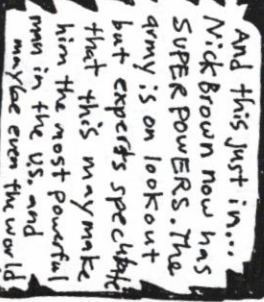 And this just in...
Nick Brown now has
SUPER POWERS. The
army is on lookout
but experts speculate
that this may make
him the most powerful
man in the U.S. and
maybe even the world